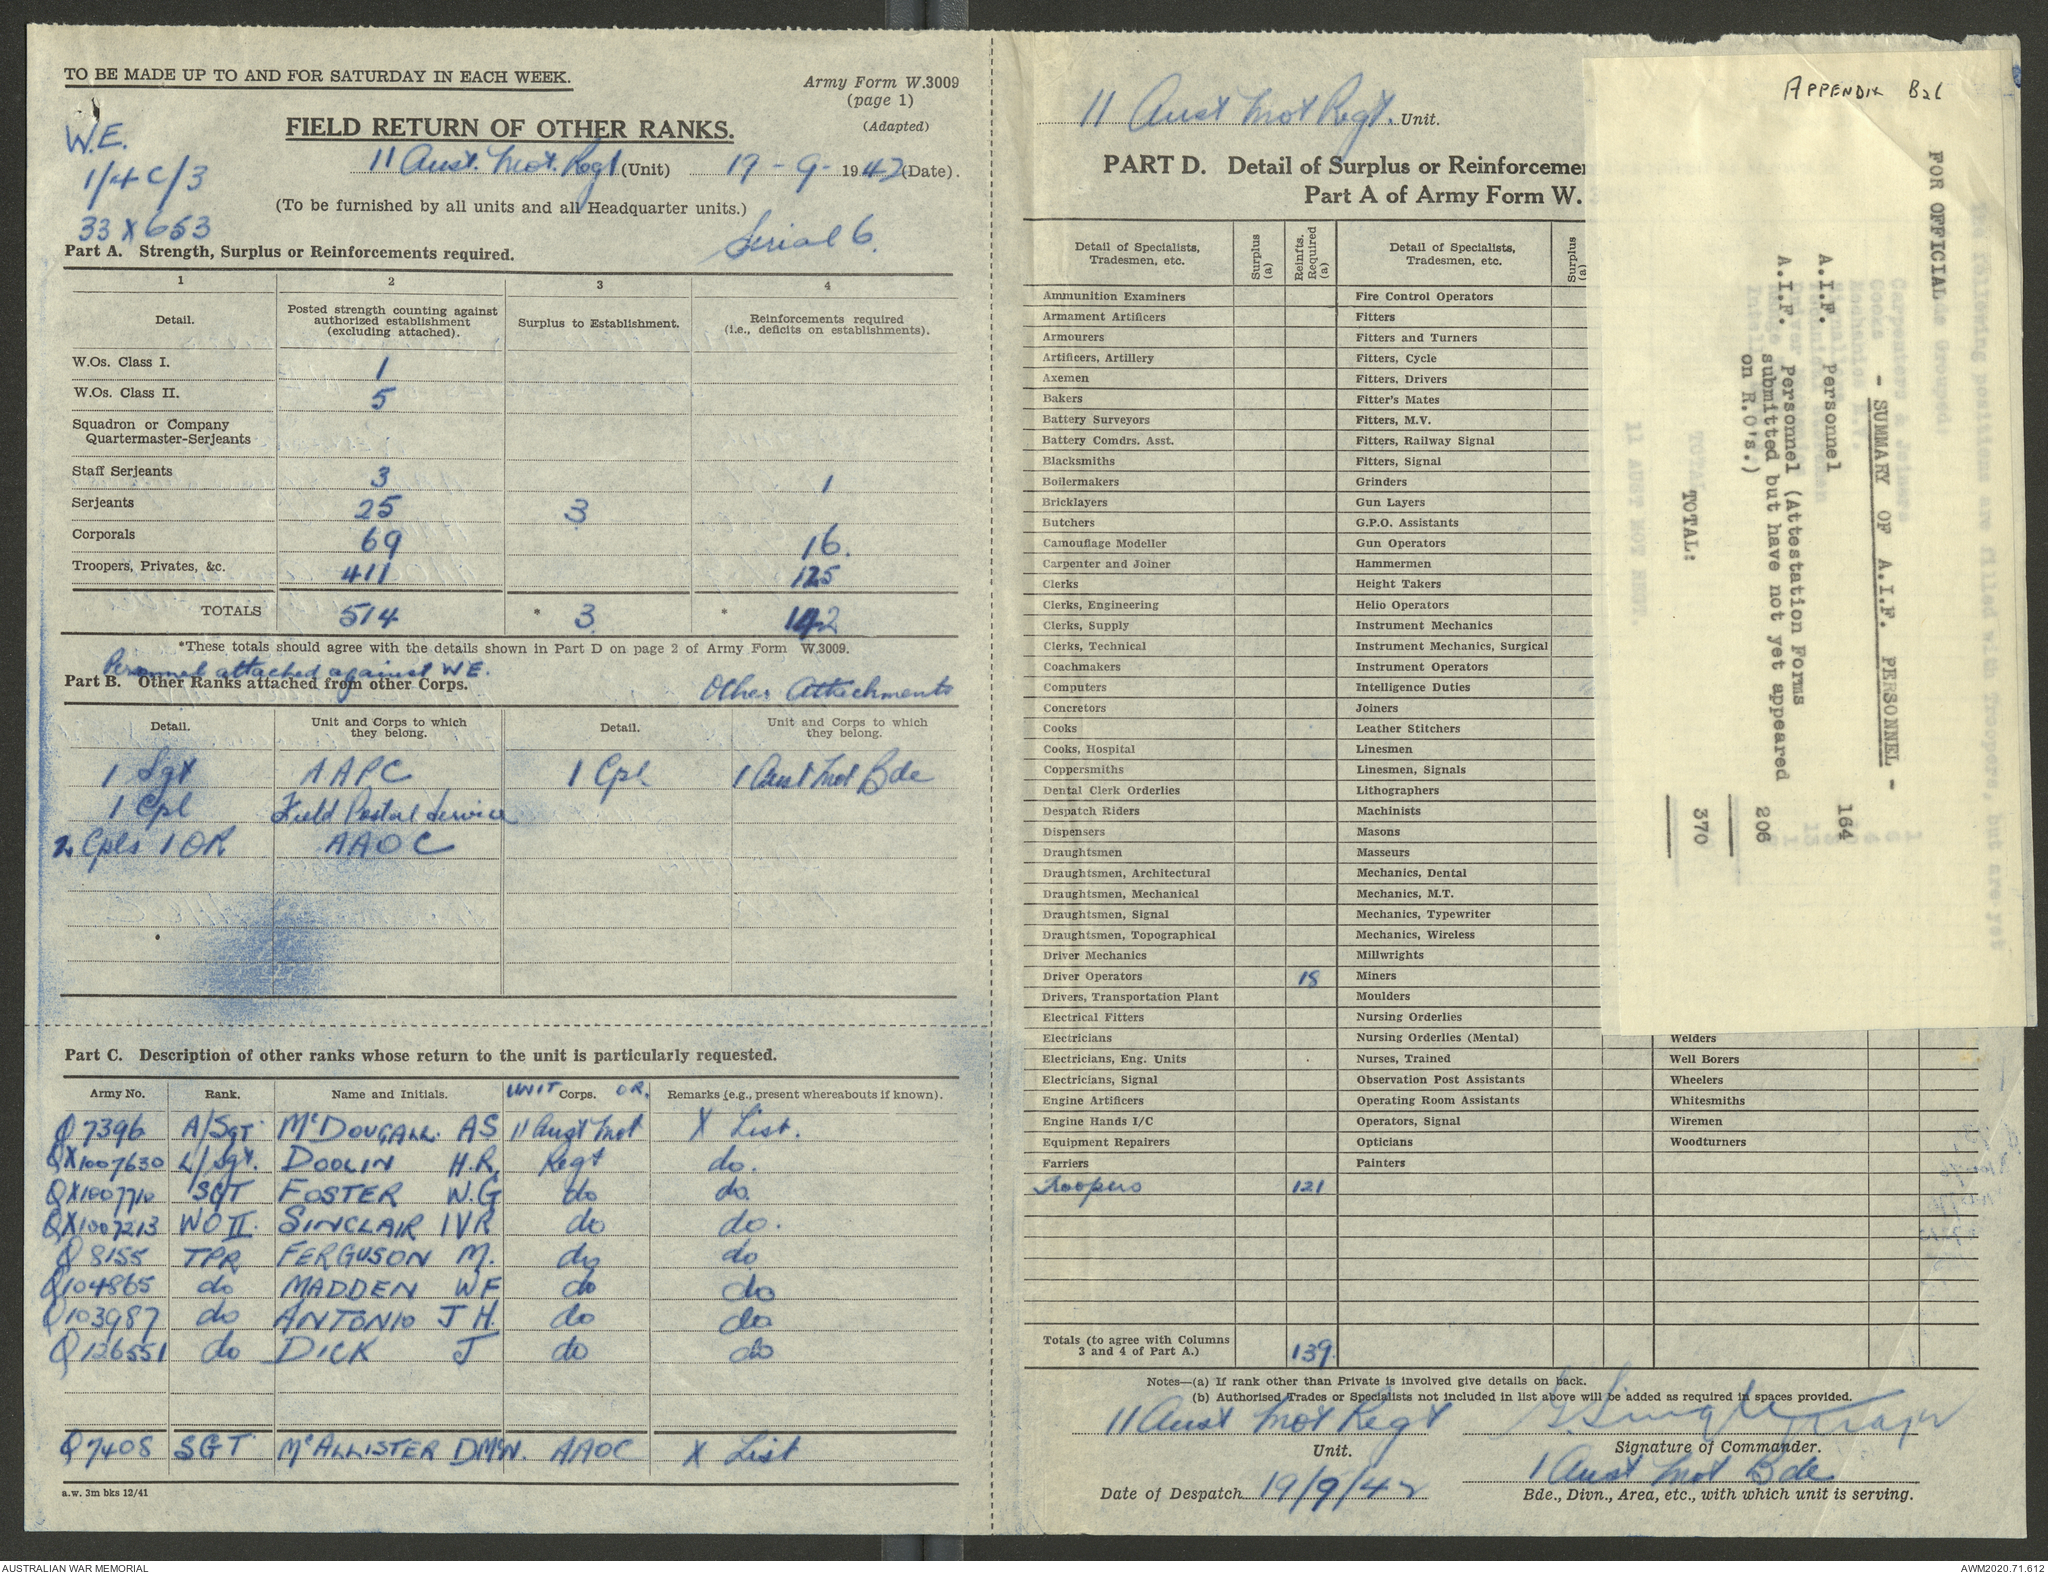 TO BE MADE UP TO AND FOR SATURDAY IN EACH WEEK.
Army Form W.3009
(page 1)
(Adapted)
W.E.
1/4C/3
33 X 653
FIELD RETURN OF OTHER RANKS.
11 Aust. Mot. Regt (Unit) 19-9-1942 (Date).
(To be furnished by all units and all Headquarter units.)
Serial 6.
Part A. Strength, Surplus or Reinforcements required.
1 2 3 4
Detail. Posted strength counting against authorized establishment (excluding attached). Surplus to Establishment. Reinforcements required (i.e., deficits on establishments).
W.Os. Class I. 1
W.Os. Class II. 5
Squadron or Company
Quartermaster-Serjeants
Staff Serjeants 3 1
Serjeants 25 3
Corporals 69 16.
Troopers, Privates, &c. 411 125
TOTALS 514 * 3 * 142
*These totals should agree with the details shown in Part D on page 2 of Army Form W.3009.
Personnel attached against W.E.
Part B. Other Ranks attached from other Corps. Other Attachments
Detail. Unit and Corps to which they belong. Detail. Unit and Corps to which they belong.
1 Sgt AAPC 1 Cpl 1 Aust Mot Bde
1 Cpl Field Postal Service
2 Cpls 1 OR AAOC
Part C. Description of other ranks whose return to the unit is particularly requested.
Army No. Rank. Name and Initials. UNIT OR. Corps. Remarks (e.g., present whereabouts if known).
Q7396 A/SGT McDOUGALL. AS 11 Aust Mot X List.
QX1007630 L/Sgt. DOOLIN H.R. Regt do.
QX1007710 SGT FOSTER W.G do do.
QX1007213 WO II. SINCLAIR IVR do do.
Q8155 TPR FERGUSON M. do do
Q104865 do MADDEN WF do do
Q103987 do ANTONIO J H. do do
Q126551 do DICK J do do
Q7408 SGT McALLISTER DMcN. AAOC X List
a.w. 3m bks 12/41
11 Aust Mot Regt. Unit.
PART D. Detail of Surplus or Reinforcemen
Part A of Army Form W.
Detail of Specialists, Tradesmen, etc. Surplus (a) Reinfts. Required (a) Detail of Specialists, Tradesmen, etc. Surplus (a)
Ammunition Examiners Fire Control Operators
Armament Artificers Fitters
Armourers Fitters and Turners
Artificers, Artillery Fitters, Cycle
Axemen Fitters, Drivers
Bakers Fitter's Mates
Battery Surveyors Fitters, M.V.
Battery Comdrs. Asst. Fitters, Railway Signal
Blacksmiths Fitters, Signal
Boilermakers Grinders
Bricklayers Gun Layers
Butchers G.P.O. Assistants
Camouflage Modeller Gun Operators
Carpenter and Joiner Hammermen
Clerks Height Takers
Clerks, Engineering Helio Operators
Clerks, Supply Instrument Mechanics
Clerks, Technical Instrument Mechanics, Surgical
Coachmakers Instrument Operators
Computers Intelligence Duties
Concretors Joiners
Cooks Leather Stitchers
Cooks, Hospital Linesmen
Coppersmiths Linesmen, Signals
Dental Clerk Orderlies Lithographers
Despatch Riders Machinists
Dispensers Masons
Draughtsmen Masseurs
Draughtsmen, Architectural Mechanics, Dental
Draughtsmen, Mechanical Mechanics, M.T.
Draughtsmen, Signal Mechanics, Typewriter
Draughtsmen, Topographical Mechanics, Wireless
Driver Mechanics Millwrights
Driver Operators 18 Miners
Drivers, Transportation Plant Moulders
Electrical Fitters Nursing Orderlies
Electricians Nursing Orderlies (Mental) Welders
Electricians, Eng. Units Nurses, Trained Well Borers
Electricians, Signal Observation Post Assistants Wheelers
Engine Artificers Operating Room Assistants Whitesmiths
Engine Hands I/C Operators, Signal Wiremen
Equipment Repairers Opticians Woodturners
Farriers Painters
Troopers 121
Totals (to agree with Columns 3 and 4 of Part A.) 139.
Notes—(a) If rank other than Private is involved give details on back.
(b) Authorised Trades or Specialists not included in list above will be added as required in spaces provided.
11 Aust Mot Regt
Unit.
Major
Signature of Commander.
Date of Despatch 19/9/42
1 Aust Mot Bde
Bde., Divn., Area, etc., with which unit is serving.
APPENDIX B26
FOR OFFICIAL
- SUMMARY OF A.I.F. PERSONNEL -
A.I.F. Personnel 164
A.I.F. Personnel (Attestation Forms
submitted but have not yet appeared
on R.O's.) 206
TOTAL: 370
AUSTRALIAN WAR MEMORIAL
AWM2020.71.612